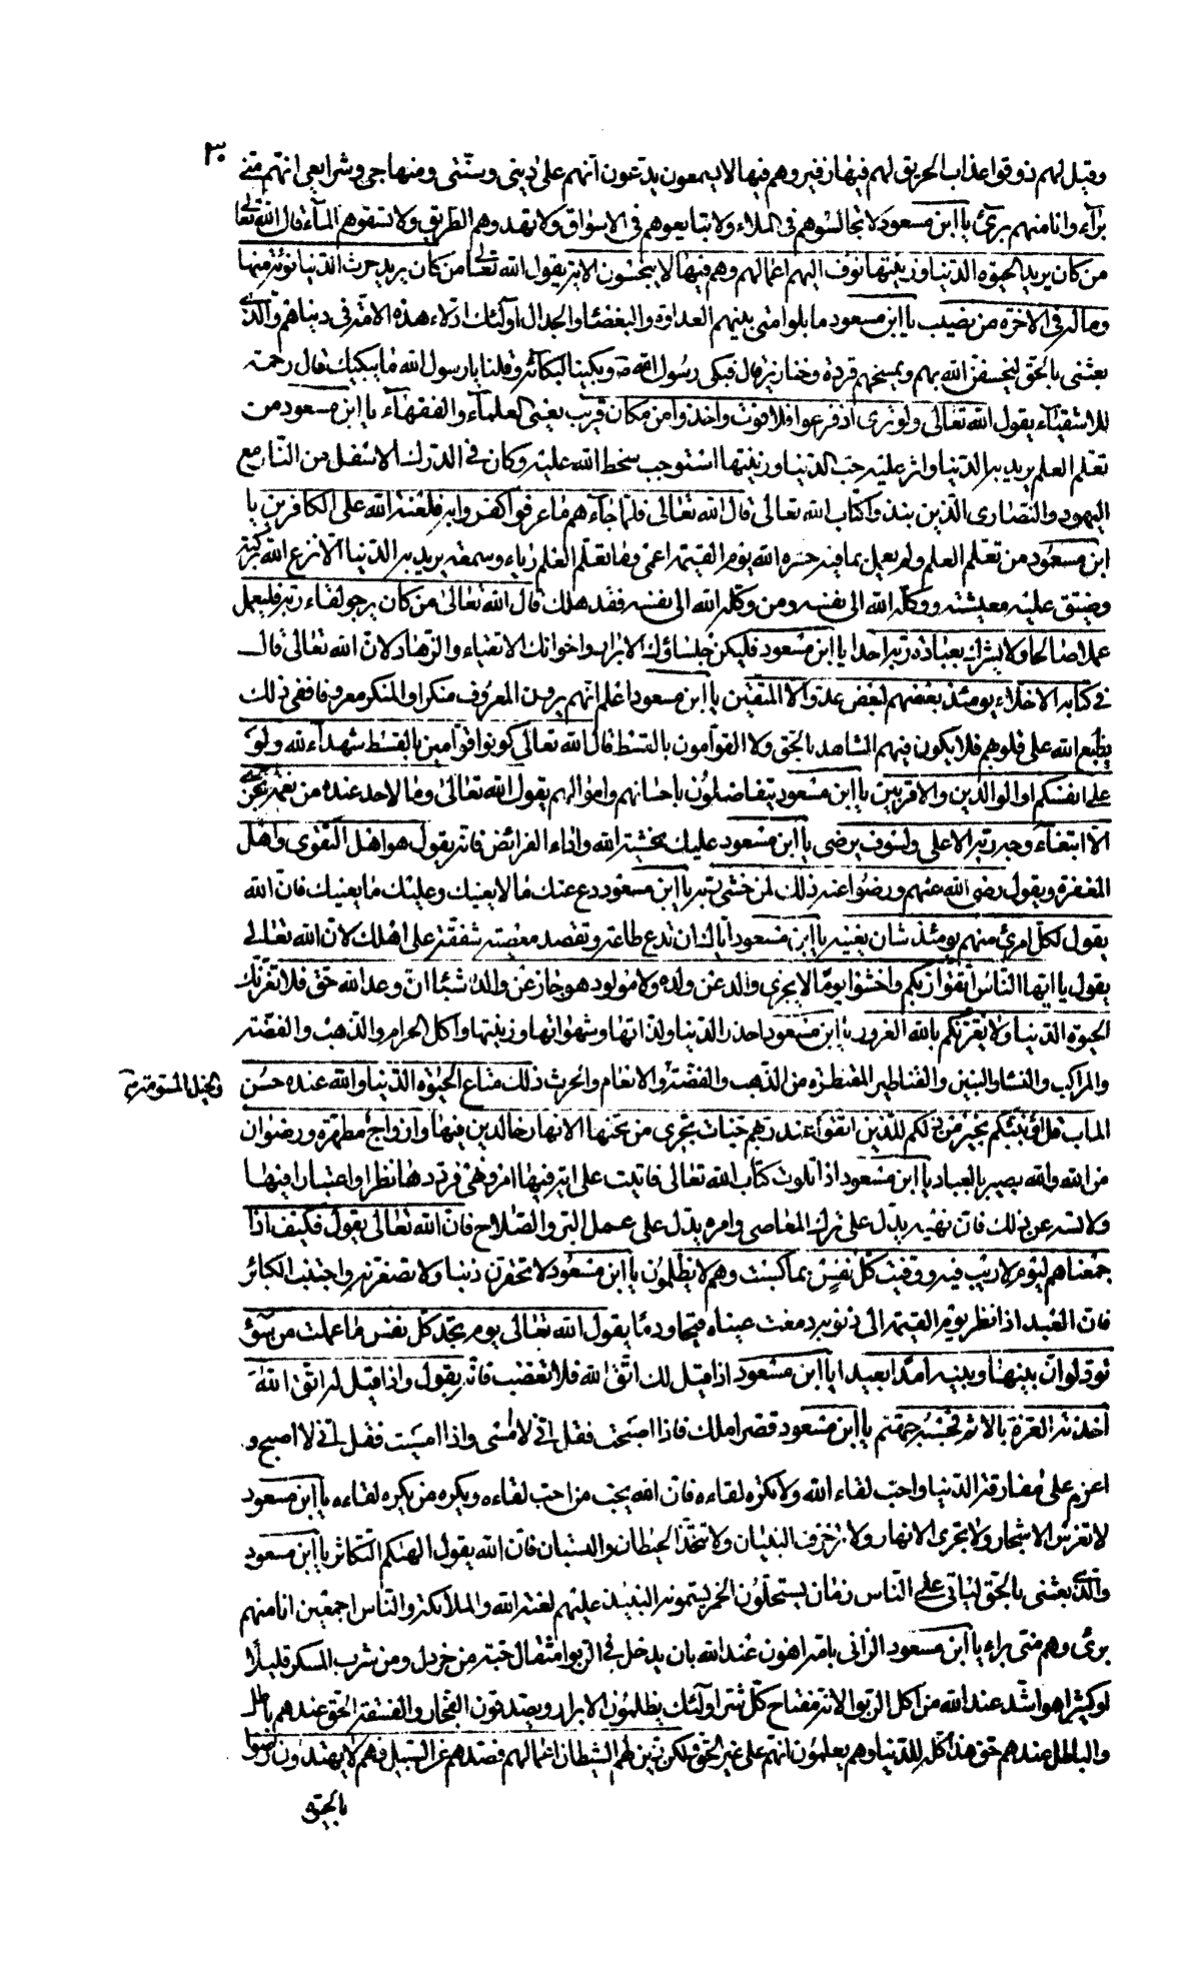 ٣٠
وقيل لهم ذوقوا عذاب الحريق لهم فيها زفير وهم فيها لا يسمعون يدعون انهم على ديني وسنتي ومنهاجي وشرايعي انهم مني
برآء وانا منهم برئ يا ابن مسعود لا تجالسوهم في الملاء ولا تبايعوهم في الاسواق ولا تهدوهم الطريق ولا تسقوهم المآء قال الله تعالى
من كان يريد الحيوة الدنيا وزينتها نوف اليهم اعمالهم وهم فيها لا يبخسون الاية يقول الله تعالى من كان يريد حرث الدنيا نؤته منها
وماله في الاخرة من نصيب يا ابن مسعود ما بلوا متى بينهم العداوة والبغضاء والجدال اولئك اذلاء هذه الامة في دنياهم والذي
بعثني بالحق ليخسفن الله بهم ويمسخهم قردة وخنازير قال فبكى رسول الله ص وبكينا لبكائه وقلنا يا رسول الله ما يبكيك فقال رحمة
للاشقياء يقول الله تعالى ولو ترى اذ فزعوا فلا فوت واخذوا من مكان قريب يعني العلماء والفقهاء يا ابن مسعود من
تعلم العلم يريد به الدنيا واثر عليه حب الدنيا وزينتها استوجب سخط الله عليه وكان في الدرك الاسفل من النار مع
اليهود والنصارى الذين نبذوا كتاب الله تعالى قال الله تعالى فلما جاءهم ما عرفوا كفروا به فلعنة الله على الكافرين يا
ابن مسعود من تعلم العلم ولم يعمل بما فيه حشره الله يوم القيمة اعمى ومن تعلم العلم رياء وسمعة يريد به الدنيا الا نزع الله بركته
وضيق عليه معيشته ووكله الله الى نفسه ومن وكله الله الى نفسه فقد هلك قال الله تعالى من كان يرجو لقاء ربه فليعمل
عملا صالحا ولا يشرك بعبادة ربه احدا يا ابن مسعود فليكن جلساؤك الابرار واخوانك الاتقياء والزهاد لان الله تعالى قال
في كتابه الاخلاء يومئذ بعضهم لبعض عدو الا المتقين يا ابن مسعود اعلم انهم يرون المعروف منكرا والمنكر معروفا ففي ذلك
يطبع الله على قلوبهم فلا يكون فيهم الشاهد بالحق ولا القوامون بالقسط قال الله تعالى كونوا قوامين بالقسط شهداء لله ولو
على انفسكم او الوالدين والاقربين يا ابن مسعود يتفاضلون باحسابهم واموالهم يقول الله تعالى وما لاحد عنده من نعمة تجزى
الا ابتغاء وجه ربه الاعلى ولسوف يرضى يا ابن مسعود عليك بخشية الله واداء الفرائض فانه يقول هو اهل التقوى واهل
المغفرة ويقول رضي الله عنهم ورضوا عنه ذلك لمن خشي ربه يا ابن مسعود دع عنك ما لا يعنيك وعليك ما يعنيك فان الله
يقول لكل امرئ منهم يومئذ شان يغنيه يا ابن مسعود اياك ان تدع طاعة وتقصد معصية شفقة على اهلك لان الله تعالى
يقول يا ايها الناس اتقوا ربكم واخشوا يوما لا يجزي والد عن ولده ولا مولود هو جاز عن والده شيئا ان وعد الله حق فلا تغرنك
الحيوة الدنيا ولا يغرنكم بالله الغرور يا ابن مسعود احذر الدنيا ولذاتها وشهواتها وزينتها واكل الحرام والذهب والفضة
والمراكب والنساء والبنين والقناطير المقنطرة من الذهب والفضة والانعام والحرث ذلك متاع الحيوة الدنيا والله عنده حسن
والخيل المسومة
الماب قل اؤنبئكم بخير من ذلكم للذين اتقوا عند ربهم جنات تجري من تحتها الانهار خالدين فيها وازواج مطهرة ورضوان
من الله والله بصير بالعباد يا ابن مسعود اذا تلوت كتاب الله تعالى فاتيت على اية فيها امر ونهي فرددها نظرا واعتبارا فيها
ولا تسه عن ذلك فان نهيه يدل على ترك المعاصي وامره يدل على عمل البر والصلاح فان الله تعالى يقول فكيف اذا
جمعناهم ليوم لا ريب فيه ووفيت كل نفس بما كسبت وهم لا يظلمون يا ابن مسعود لا تحقرن ذنبا ولا تصغرنه واجتنب الكبائر
فان العبد اذا نظر يوم القيمة الى ذنوبه دمعت عيناه قيحا ودما يقول الله تعالى يوم تجد كل نفس ما عملت من سوء
تود لو ان بينها وبينه امدا بعيدا يا ابن مسعود اذا قيل لك اتق الله فلا تغضب فانه يقول واذا قيل له اتق الله
اخذته العزة بالاثم فحسبه جهنم يا ابن مسعود قصر املك فاذا اصبحت فقل اني لا امسي واذا امسيت فقل اني لا اصبح و
اعزم على مفارقة الدنيا واحب لقاء الله ولا تكره لقاءه فان الله يحب من احب لقاءه ويكره من يكره لقاءه يا ابن مسعود
لا تغرس الاشجار ولا تجري الانهار ولا تزخرف البنيان ولا تتخذ الحيطان والبستان فان الله يقول الهيكم التكاثر يا ابن مسعود
والذي بعثني بالحق لياتي على الناس زمان يستحلون الخمر يسمونه النبيذ عليهم لعنة الله والملائكة والناس اجمعين انا منهم
برئ وهم مني براء يا ابن مسعود الزاني بامه اهون عند الله بان يدخل في الربوا مثقال حبة من خردل ومن شرب المسكر قليلا
او كثيرا هو اشد عند الله من اكل الربوا لانه مفتاح كل شر اولئك يظلمون الابرار ويصدقون الفجار والفسقة الحق عندهم باطل
والباطل عندهم حق هذا كله للدنيا وهم يعلمون انهم على غير الحق ولكن زين لهم الشيطان اعمالهم فصدهم عن السبيل فهم لا يهتدون رضوا
بالحيوة